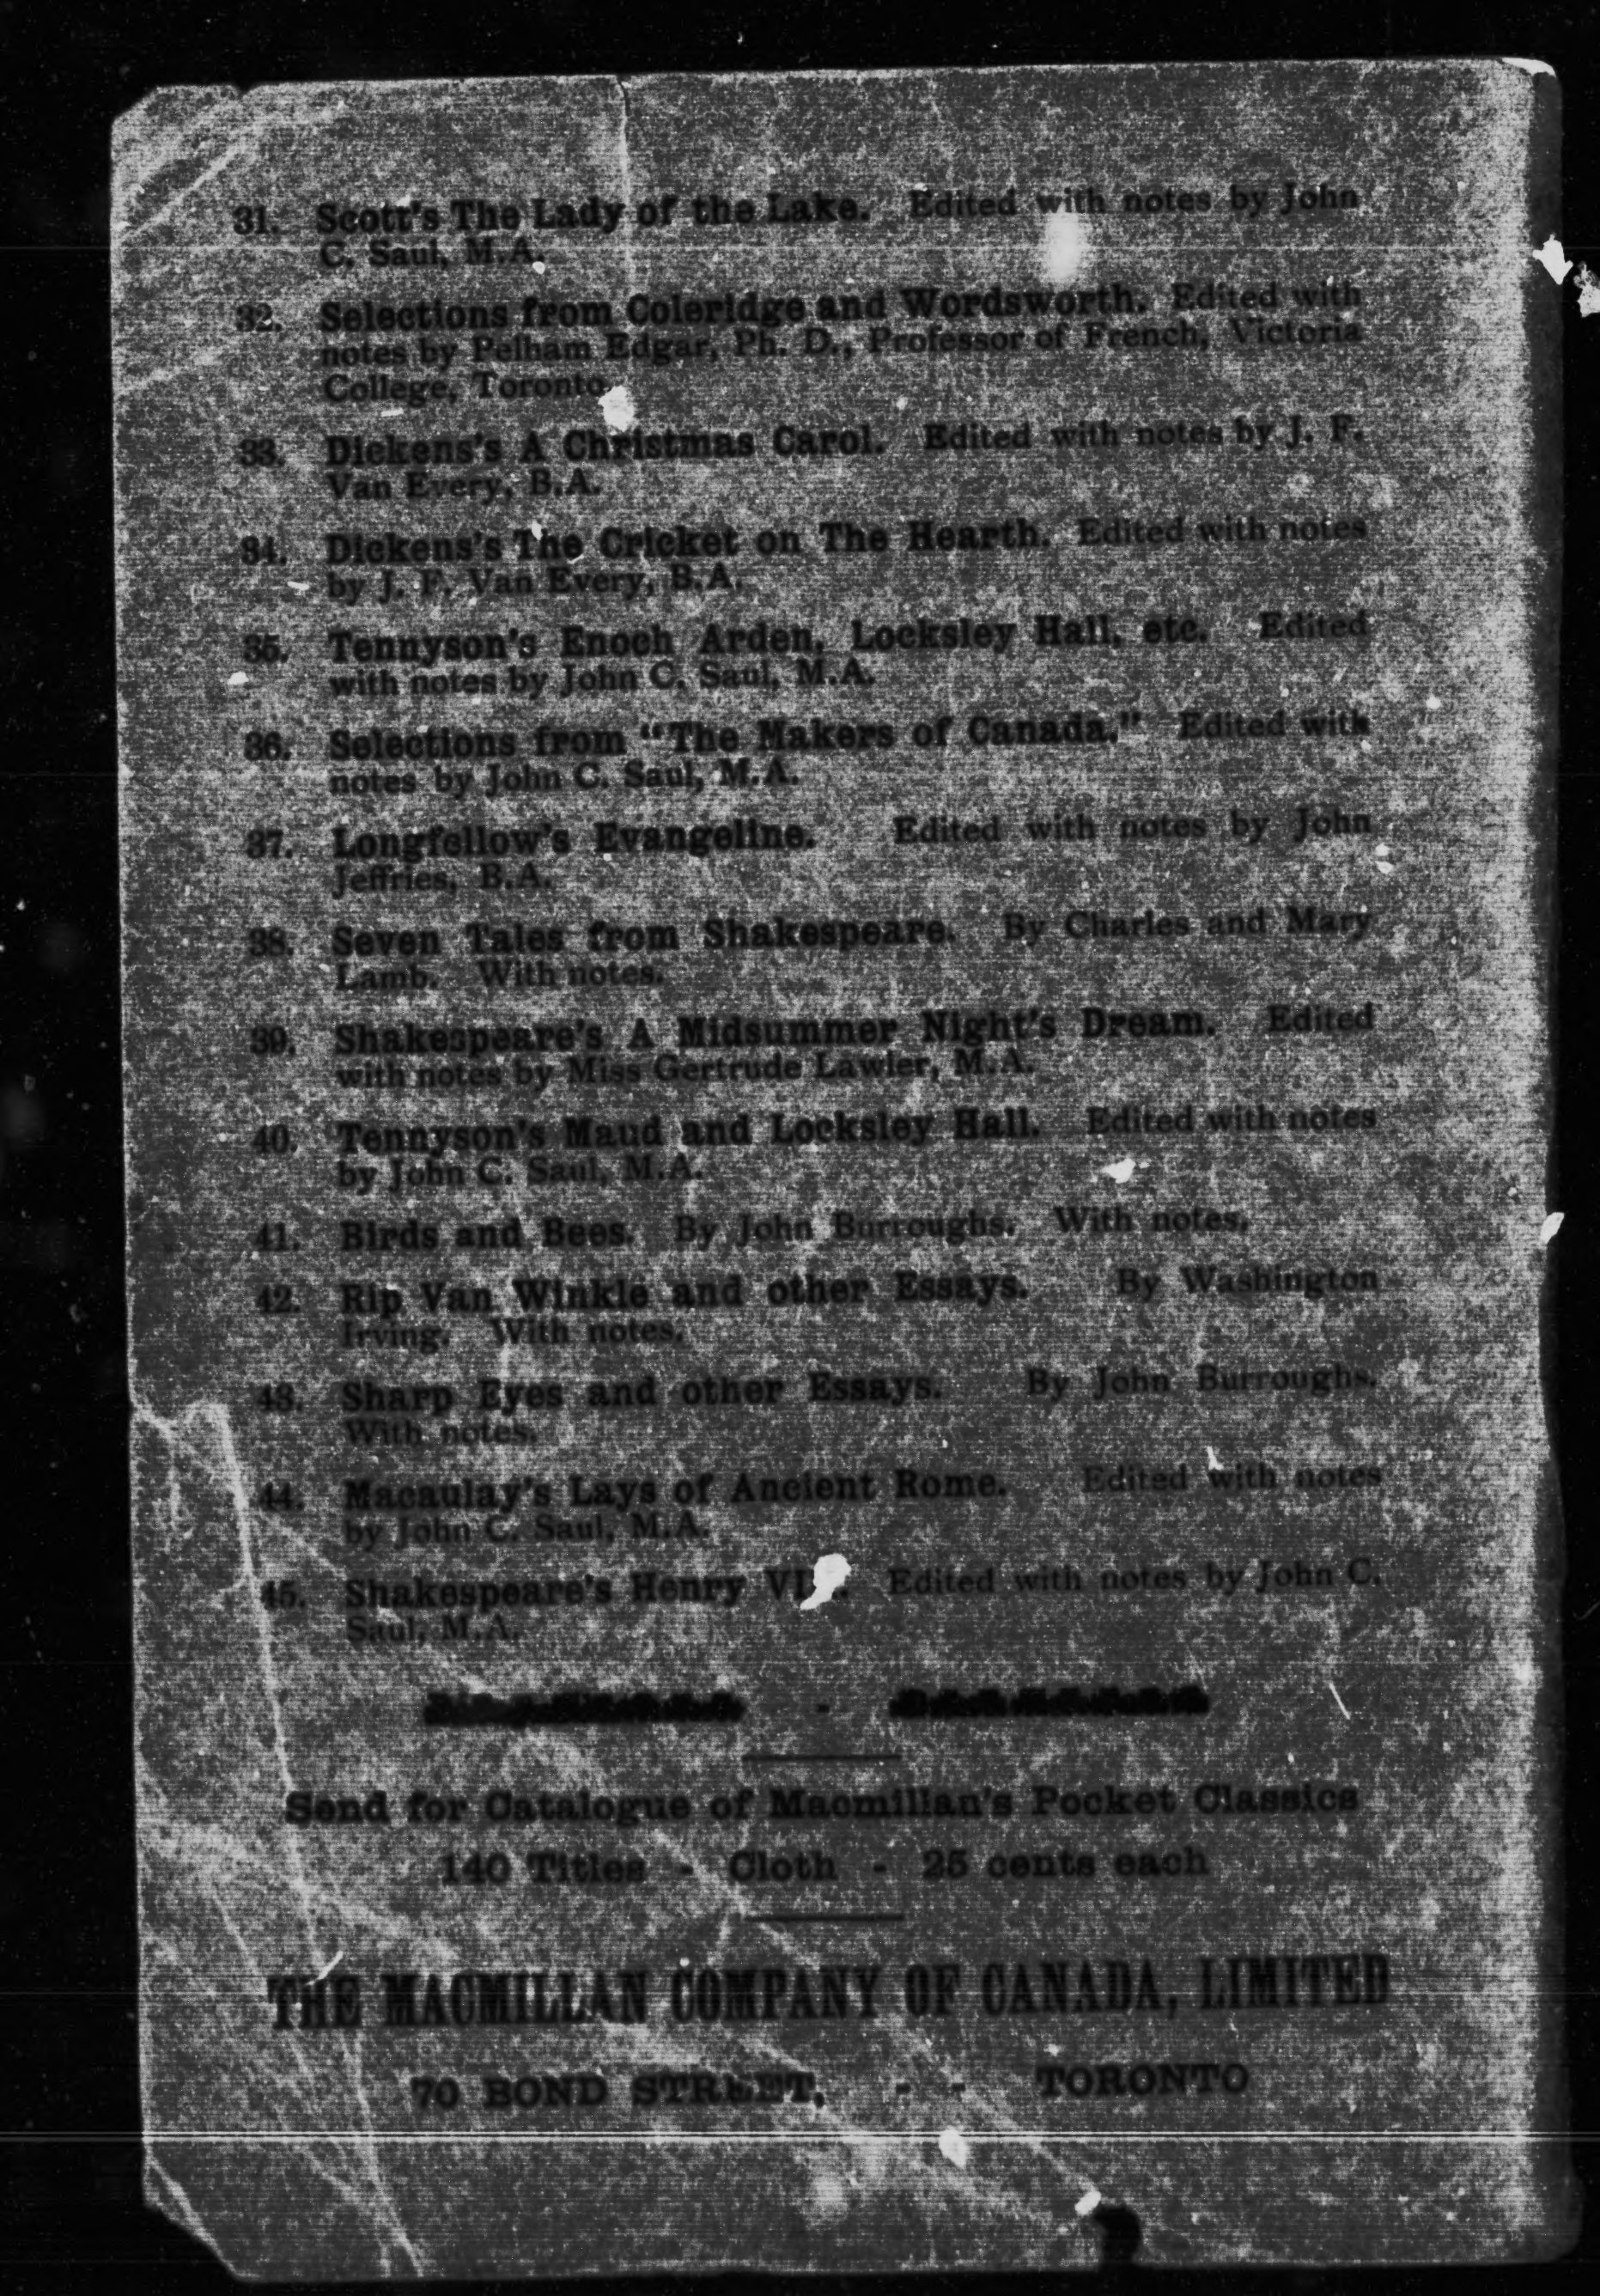 31. Scott's The Lady of the Lake. Edited with notes by John
C. Saul, M.A.
32. Selections from Coleridge and Wordsworth. Edited with
notes by Pelham Edgar, Ph. D., Professor of French, Victoria
College, Toronto.
33. Dickens's A Christmas Carol. Edited with notes by J. F.
Van Every, B.A.
34. Dickens's The Cricket on The Hearth. Edited with notes
by J. F. Van Every, B.A.
35. Tennyson's Enoch Arden, Locksley Hall, etc. Edited
with notes by John C. Saul, M.A.
36. Selections from "The Makers of Canada." Edited with
notes by John C. Saul, M.A.
37. Longfellow's Evangeline. Edited with notes by John
Jeffries, B.A.
38. Seven Tales from Shakespeare. By Charles and Mary
Lamb. With notes.
39. Shakespeare's A Midsummer Night's Dream. Edited
with notes by Miss Gertrude Lawler, M.A.
40. Tennyson's Maud and Locksley Hall. Edited with notes
by John C. Saul, M.A.
41. Birds and Bees. By John Burroughs. With notes.
42. Rip Van Winkle and other Essays. By Washington
Irving. With notes.
43. Sharp Eyes and other Essays. By John Burroughs.
With notes.
44. Macaulay's Lays of Ancient Rome. Edited with notes
by John C. Saul, M.A.
45. Shakespeare's Henry Edited with notes by John C.
Saul, M.A.
Send for Catalogue of Macmillan's Pocket Classics
140 Titles - Cloth - 25 cents each
THE MACMILLAN COMPANY OF CANADA, LIMITED
70 BOND STREET, - - TORONTO